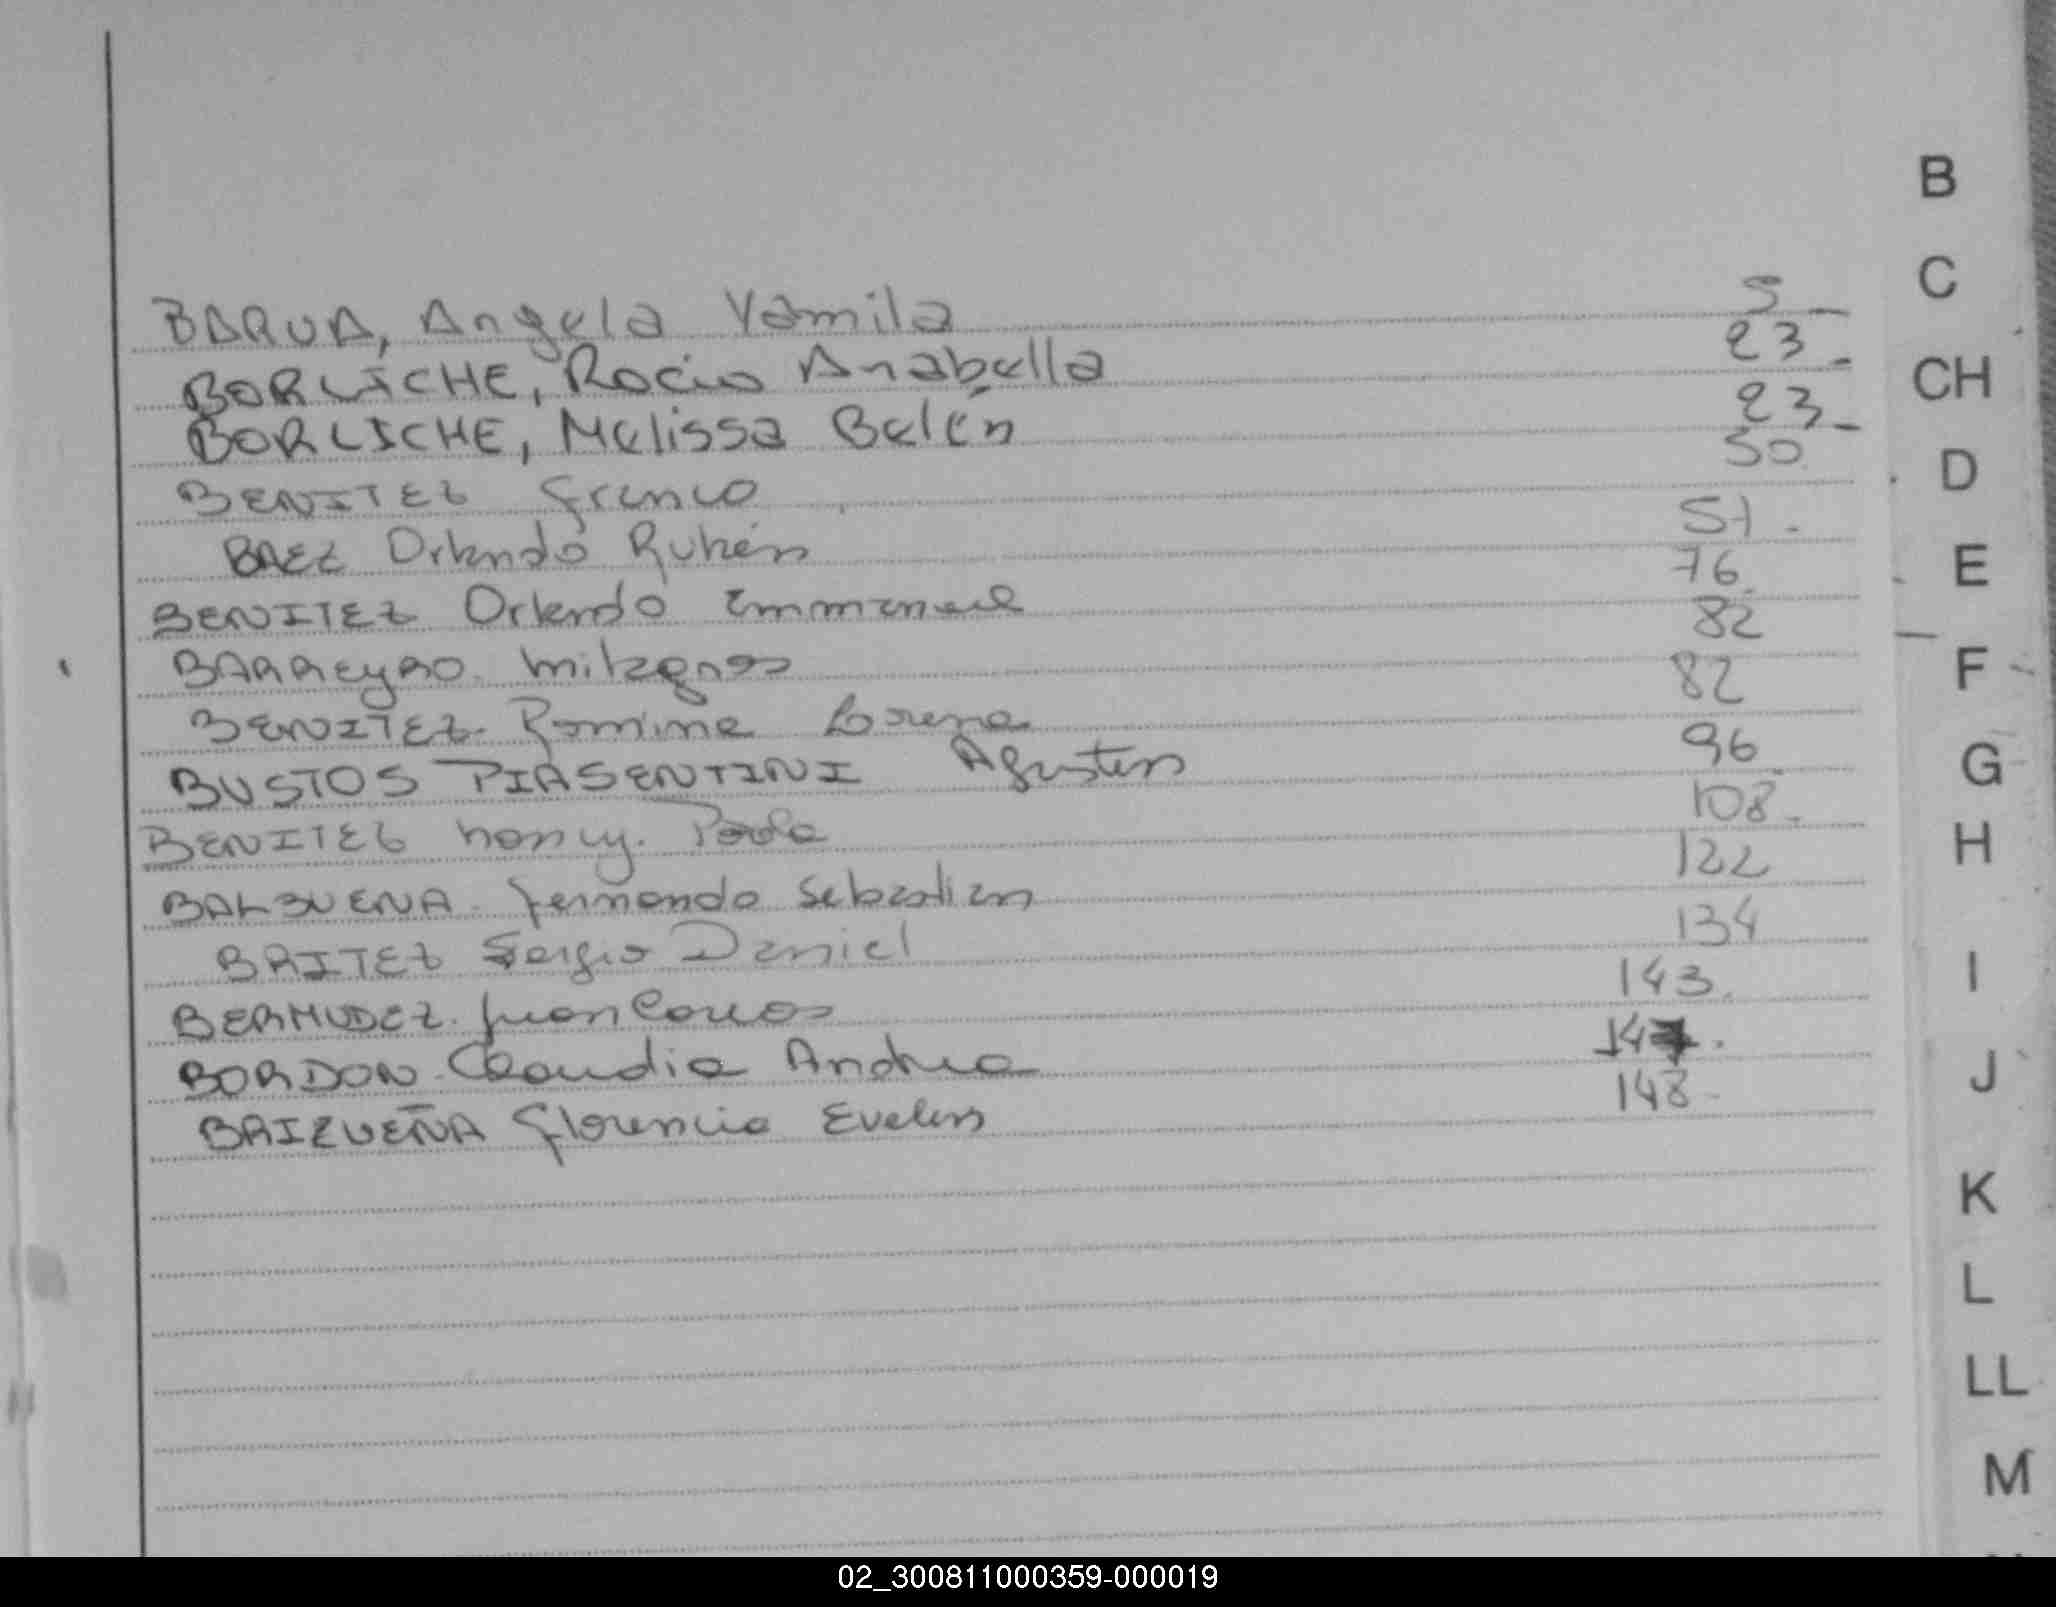 B
C
CH
D
E
F
G
H
I
J
K
L
LL
M
BARUA, Angela Yamila 5
BORLICHE, Rocio Anabella 23
BORLICHE, Melissa Belén 23
BENITEZ Franco 50
BAEZ Orlando Rubén 51
BENITEZ Orlando Emmanuel 76
BARREYRO Milagros 82
BENITEZ Romina Lorena 82
BUSTOS PIASENTINI Agustin 96
BENITEZ Nancy Paola 108
BALBUENA Fernando Sebastian 122
BRITEZ Sergio Daniel 134
BERMUDEZ Juan Carlos 143
BORDON Claudia Andrea 147
BRIZUEÑA Florencia Evelin 148
02_300811000359-000019